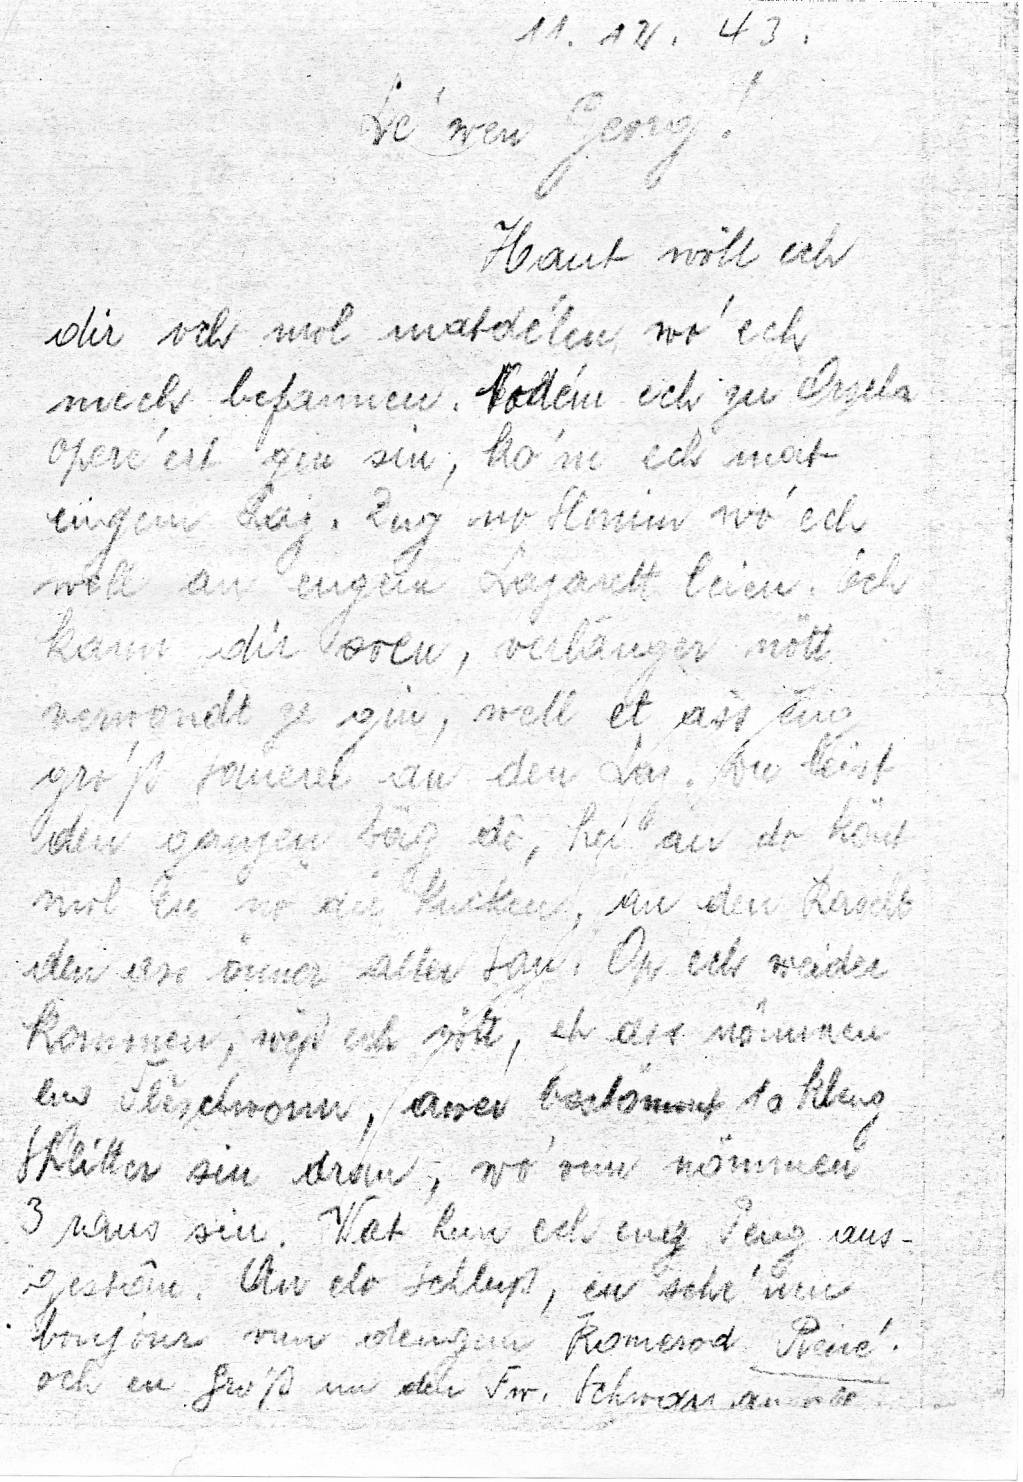 11. IV. 43.
Le'wen Georg!
Haut wöll ech
dir och mol matdélen wo' ech
mech befannen. Nodém ech zu Orscha
opere'ert gin sin, ko'm ech mat
engem Laz. Zug no Slonim wo' ech
well an engem Lazarett leien. Ech
kann dir soen, verlänger nött
verwondt ze gin, well et ass eng
gro'ß sauerei an den Laz. Du leist
den ganzen Dag do, hei an do könt
mol en no dir kucken, an den Rescht
den ass ömmer alles
Op ech weider
kommen, weß ech nött, et ass nömmen
eng Fleschwonn, awer bestömmt 10 kleng
Splitter sin dran, wo' vun nömmen
3 raus sin. Wat hun ech eng Peng aus-
gestan. An elo Schluß, en sche'nen
bonjour vun dengem Komerod René.
och en Gro'ß un den Fw. Schwarz an